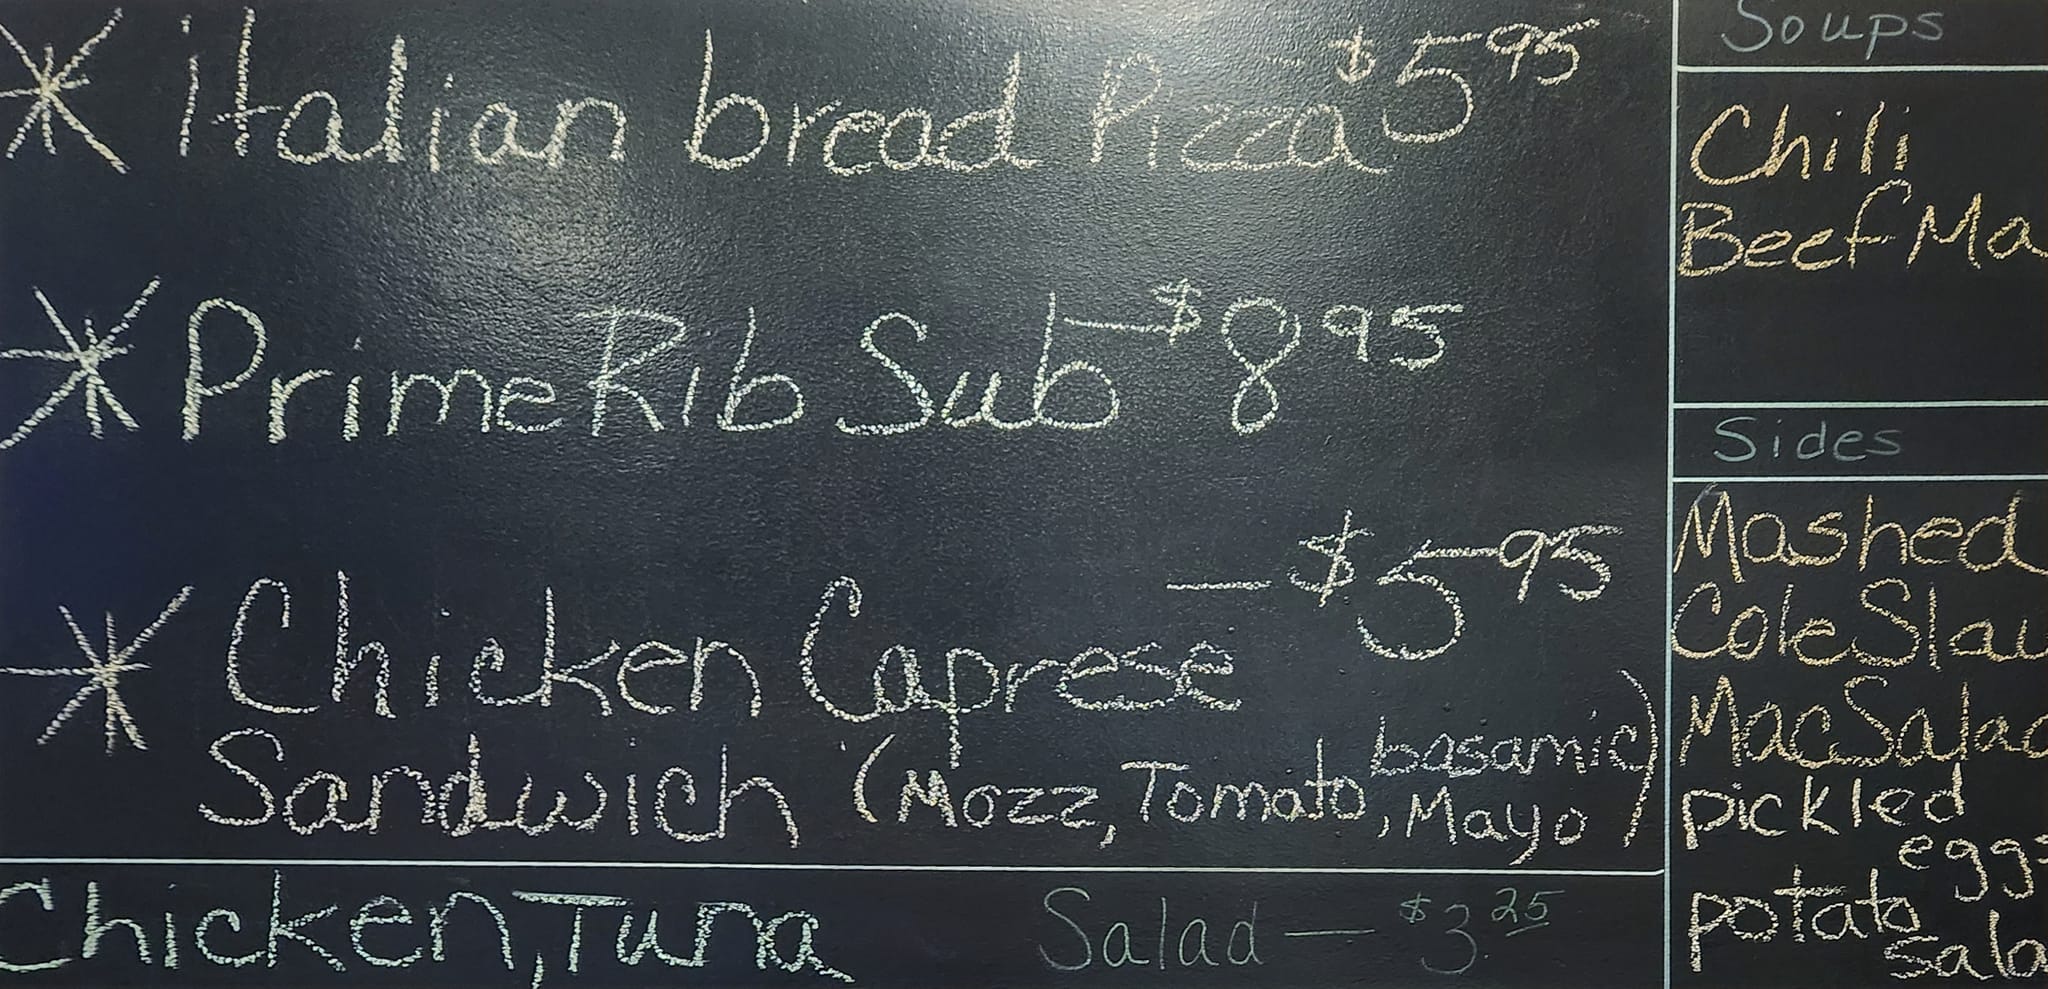 italian bread Pizza - $5 95
Prime Rib Sub - $8 95
Chicken Caprese - $5 95
Sandwich (Mozz, Tomato, basamic, Mayo)
Chicken, Tuna Salad - $3.25
Soups
Chili
Beef Ma
Sides
Mashed
Cole Slaw
Mac Salad
pickled
eggs
potato
sala